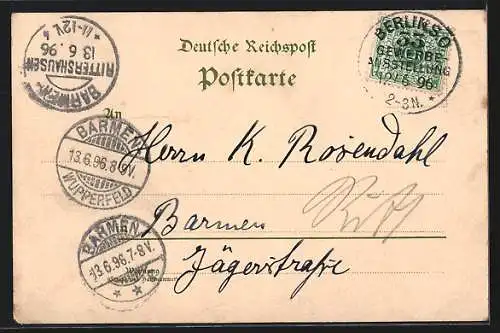 Deutsche Reichspost
Postkarte
An
BERLIN SO
33
GEWERBE-
AUSSTELLUNG
12/6 96
2-3N.
BARMEN-
RITTERSHAUSEN
13 6. 96
11-12V.
BARMEN-
13.6.96.8-9V.
WUPPERFELD
BARMEN
13.6.96.7-8V.
Herrn K. Rosendahl
Barmen
Jägerstraße
Wohnung